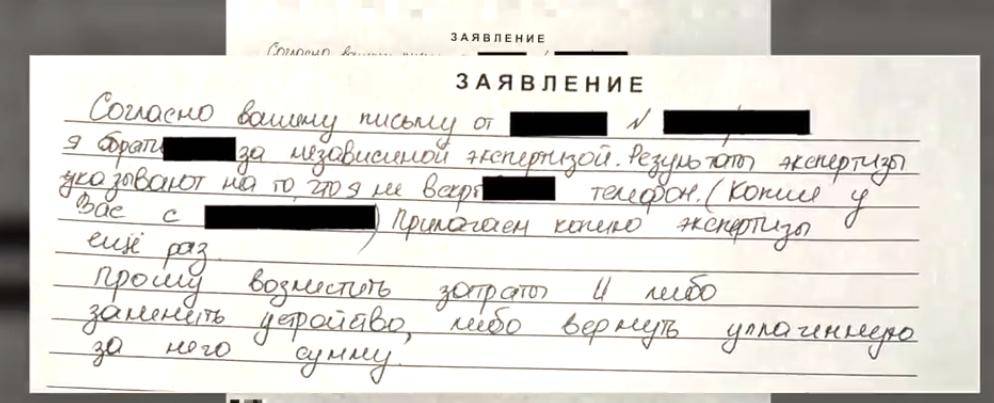 ЗАЯВЛЕНИЕ
Согласно
ЗАЯВЛЕНИЕ
Согласно вашему письму от N
я обрати за независимой экспертизой. Результаты экспертизы
указывают на то, что я не вскр телефон. (Копие у
Вас с ) Прилагаем копию экспертизы
ещё раз.
Прошу возместить затраты и либо
заменить устройство, либо вернуть уплаченную
за него сумму.